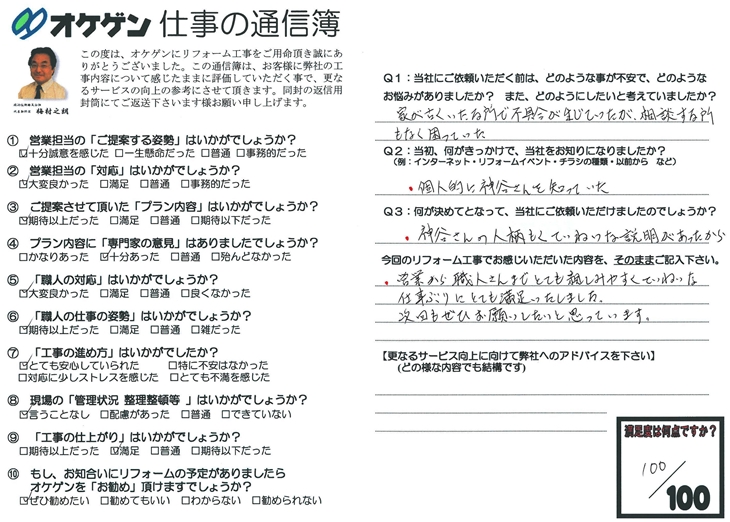 オケゲン 仕事の通信簿
この度は、オケゲンにリフォーム工事をご用命頂き誠にあ
りがとうございました。この通信簿は、お客様に弊社の工
事内容について感じたままに評価していただく事で、更な
るサービスの向上の参考にさせて頂きます。同封の返信用
封筒にてご返送下さいます様お願い申し上げます。
① 営業担当の「ご提案する姿勢」はいかがでしょうか?
☑十分誠意を感じた □一生懸命だった □普通 □事務的だった
② 営業担当の「対応」はいかがでしょうか?
☑大変良かった □満足 □普通 □事務的だった
③ ご提案させて頂いた「プラン内容」はいかがでしょうか?
☑期待以上だった □満足 □普通 □期待以下だった
④ プラン内容に「専門家の意見」はありましたでしょうか?
□かなりあった ☑十分あった □普通 □殆んどなかった
⑤ 「職人の対応」はいかがでしょうか?
☑大変良かった □満足 □普通 □良くなかった
⑥ 「職人の仕事の姿勢」はいかがでしょうか?
☑期待以上だった □満足 □普通 □雑だった
⑦ 「工事の進め方」はいかがでしたか?
☑とても安心していられた □特に不安はなかった
□対応に少しストレスを感じた □とても不満を感じた
⑧ 現場の「管理状況 整理整頓等 」はいかがでしょうか?
☑言うことなし □配慮があった □普通 □できていない
⑨ 「工事の仕上がり」はいかがでしょうか?
□期待以上だった ☑満足 □普通 □期待以下だった
⑩ もし、お知合いにリフォームの予定がありましたら
オケゲンを「お勧め」頂けますでしょうか?
☑ぜひ勧めたい □勧めてもいい □わからない □勧められない
Q1:当社にご依頼いただく前は、どのような事が不安で、どのような
お悩みがありましたか? また、どのようにしたいと考えていましたか?
家が古くいたる所で不具合が生じていたが、相談する所
もなく困っていた
Q2:当初、何がきっかけで、当社をお知りになりましたか?
(例:インターネット・リフォームイベント・チラシの種類・以前から など)
・個人的に神谷さんを知っていた
Q3:何が決めてとなって、当社にご依頼いただけましたのでしょうか?
・神谷さんの人柄もていねいな説明があったから
今回のリフォーム工事でお感じいただいた内容を、そのままご記入下さい。
・営業から職人さんまでとても親しみやすくていねいな
仕事ぶりにとても満足いたしました。
次回もぜひお願いしたいと思っています。
【更なるサービス向上に向けて弊社へのアドバイスを下さい】
(どの様な内容でも結構です)
満足度は何点ですか?
100/100